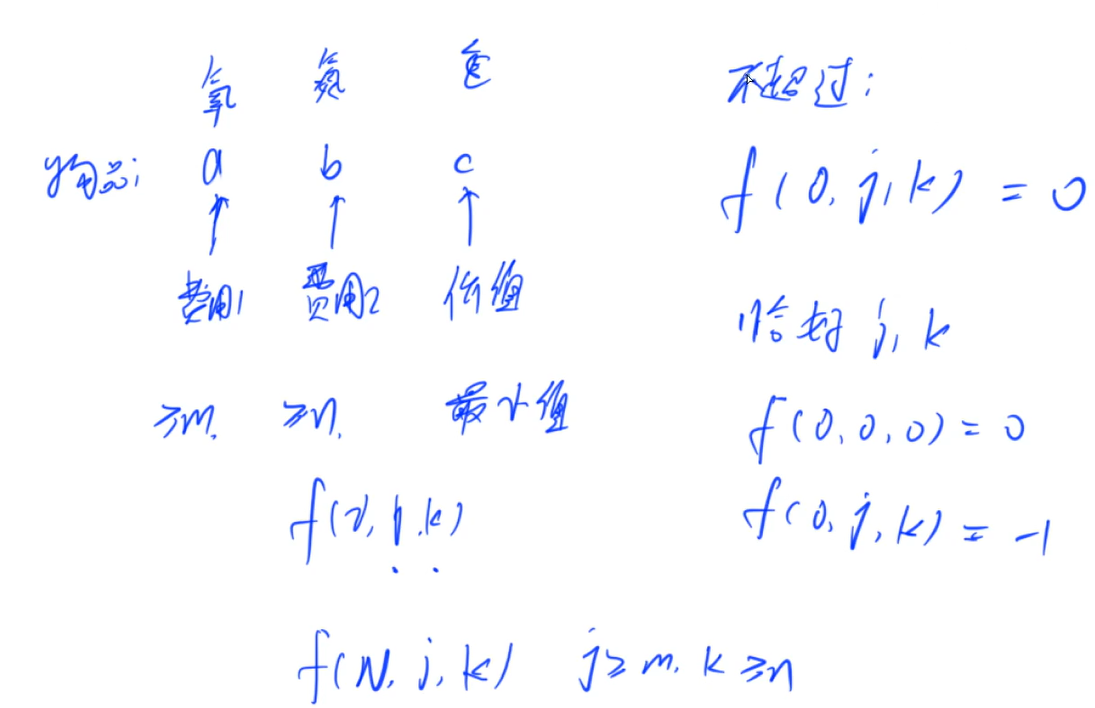 氧 氮
物品i a b c
费用1 费用2 价值
≥m, ≥n, 最小值
f(i, j, k)
f(N, j, k) j≥m, k≥n
不超过:
f(0, j, k) = 0
恰好 j, k
f(0, 0, 0) = 0
f(0, j, k) = -1